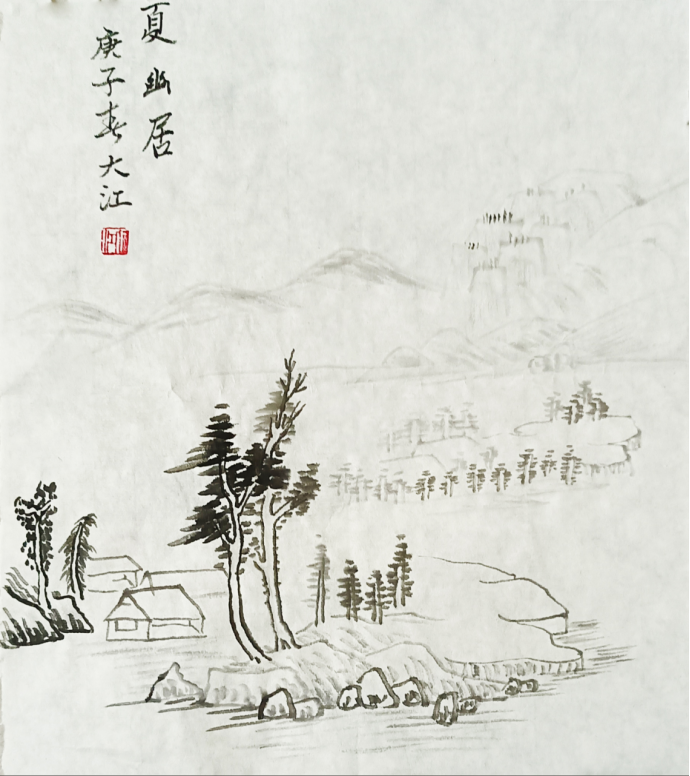 夏幽居
庚子春大江